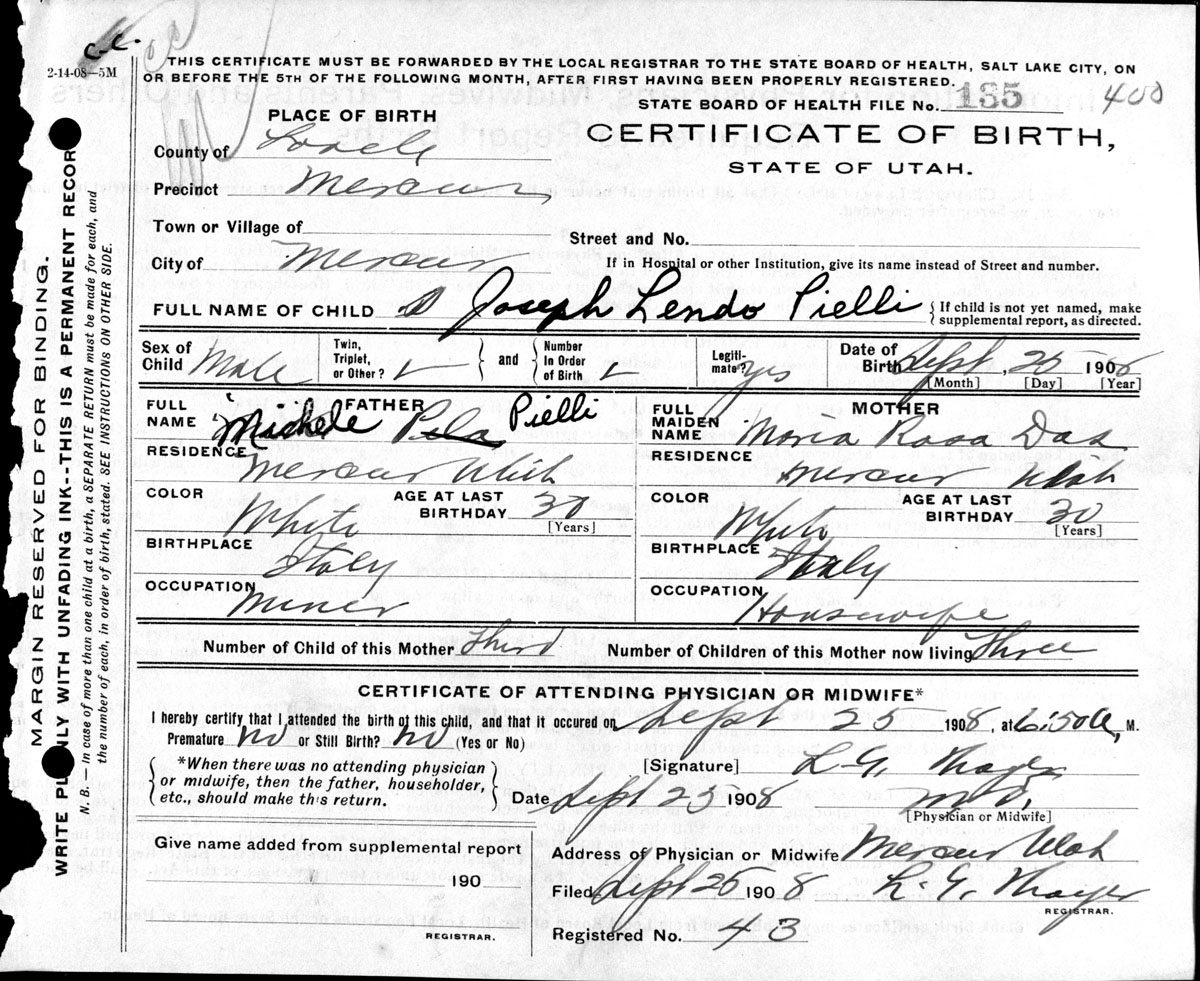 c-c.
2-14-08—5M
THIS CERTIFICATE MUST BE FORWARDED BY THE LOCAL REGISTRAR TO THE STATE BOARD OF HEALTH, SALT LAKE CITY, ON
OR BEFORE THE 5TH OF THE FOLLOWING MONTH, AFTER FIRST HAVING BEEN PROPERLY REGISTERED.
STATE BOARD OF HEALTH FILE No. 135 400
PLACE OF BIRTH
CERTIFICATE OF BIRTH,
STATE OF UTAH.
County of
Precinct Mercur
Town or Village of
Street and No.
City of Mercur
If in Hospital or other Institution, give its name instead of Street and number.
FULL NAME OF CHILD Joseph Lendo Pielli { If child is not yet named, make
supplemental report, as directed.
Sex of Child Male
Twin, Triplet, or Other?
and
Number In Order of Birth
Legiti- mate? yes
Date of Birth Sept 25 1908
[Month] [Day] [Year]
FATHER
FULL NAME Michele Pielli
RESIDENCE Mercur Utah
COLOR White
AGE AT LAST BIRTHDAY 30
[Years]
BIRTHPLACE Italy
OCCUPATION Miner
MOTHER
FULL MAIDEN NAME Moria Rosa
RESIDENCE Mercur Utah
COLOR White
AGE AT LAST BIRTHDAY 30
[Years]
BIRTHPLACE Italy
OCCUPATION Housewife
Number of Child of this Mother Third
Number of Children of this Mother now living Three
CERTIFICATE OF ATTENDING PHYSICIAN OR MIDWIFE*
I hereby certify that I attended the birth of this child, and that it occured on Sept 25 1908, at 6:50 a, M.
Premature No or Still Birth? No (Yes or No)
*When there was no attending physician
or midwife, then the father, householder,
etc., should make this return.
[Signature] L. G. Thayer
Date Sept 25 1908 M.D.
[Physician or Midwife]
Give name added from supplemental report
190
REGISTRAR.
Address of Physician or Midwife Mercur Utah
Filed Sept 25 1908 L. G. Thayer
REGISTRAR.
Registered No. 43
MARGIN RESERVED FOR BINDING.
WRITE PLAINLY WITH UNFADING INK--THIS IS A PERMANENT RECORD
N. B.— In case of more than one child at a birth, a SEPARATE RETURN must be made for each, and
the number of each, in order of birth, stated. SEE INSTRUCTIONS ON OTHER SIDE.